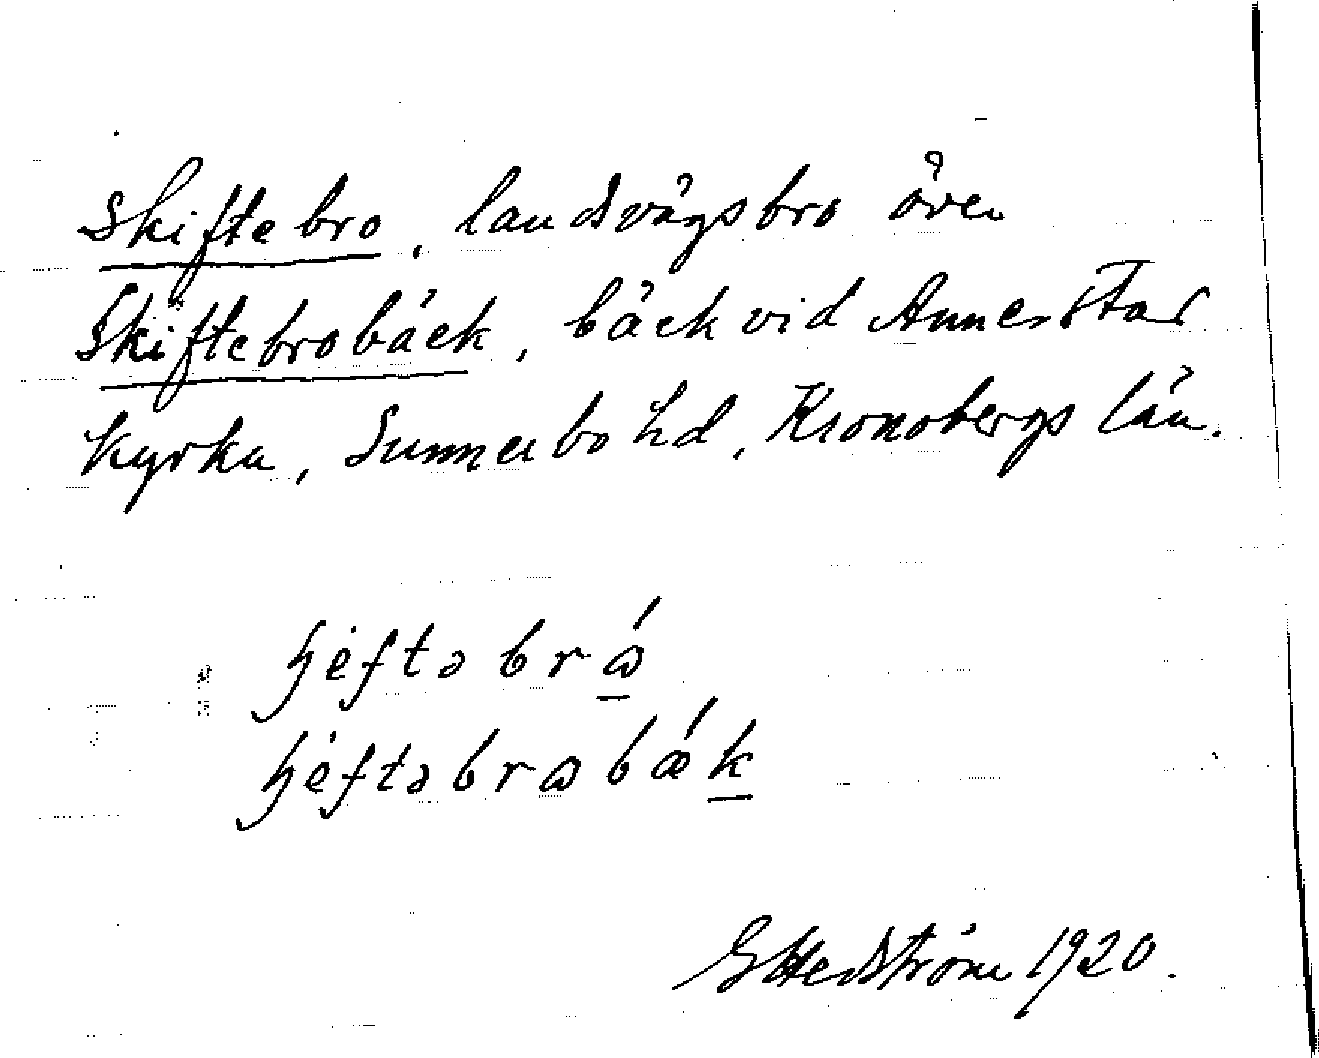 Skiftebro, landsvägsbro över
Skiftebrobäck, bäck vid Annerstad
kyrka, Sunnerbo hd, Kronobergs län.
ɧėftəbrɷ́
ɧėftəbrɷbǽk
G Hedström 1920.